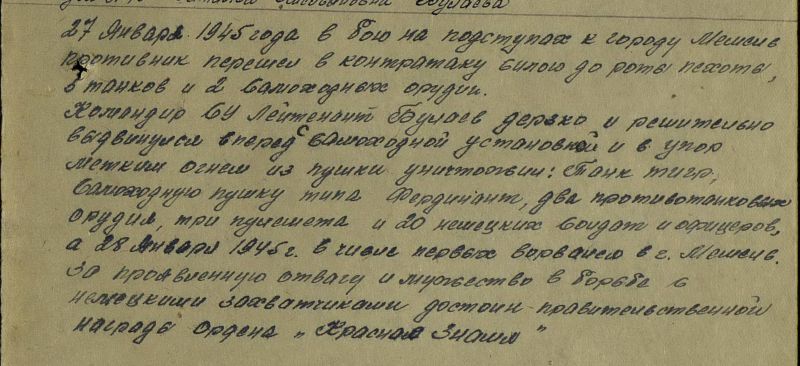 Булаева
27 Января 1945 года в бою на подступах к городу Мемель
противник перешел в контратаку силою до роты пехоты,
5 танков и 2 самоходных орудии.
Командир СУ Лейтенант Булаев дерзко и решительно
выдвинулся вперед с самоходной установкой и в упор
метким огнем из пушки уничтожил: Танк тигр,
самоходную пушку типа Фердинант, два противотанковых
орудия, три пулемета и 20 немецких солдат и офицеров,
а 28 Января 1945 г. в числе первых ворвался в г. Мемель.
За проявленную отвагу и мужество в борьбе с
немецкими захватчиками достоин правительственной
награды ордена „Красная Знамя"